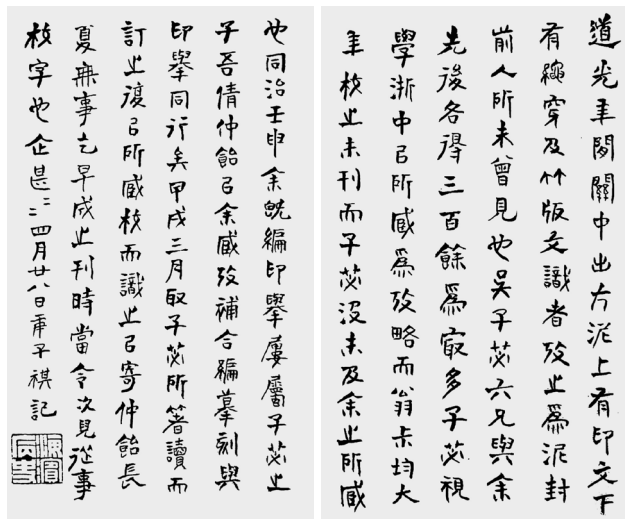 道光年間關中出古泥上有印文下
有繩穿及竹版文識者攷㞢爲泥封
前人所未曾見也吴子苾六兄與余
先後各得三百餘爲冣多子苾視
學浙中㠯所臧爲攷略而翁未均大
年校㞢未刊而子苾没未及余㞢所臧
也同治壬申余既編印舉屢屬子苾㞢
子吾倩仲飴㠯余臧攷補合編摹刻與
印舉同行矣甲戌三月取子苾所箸讀而
訂㞢復㠯所臧校而識㞢㠯寄仲飴長
夏無事乞早成㞢刊時當令次兒從事
校字也企甚二二四月廿八日庚子祺記